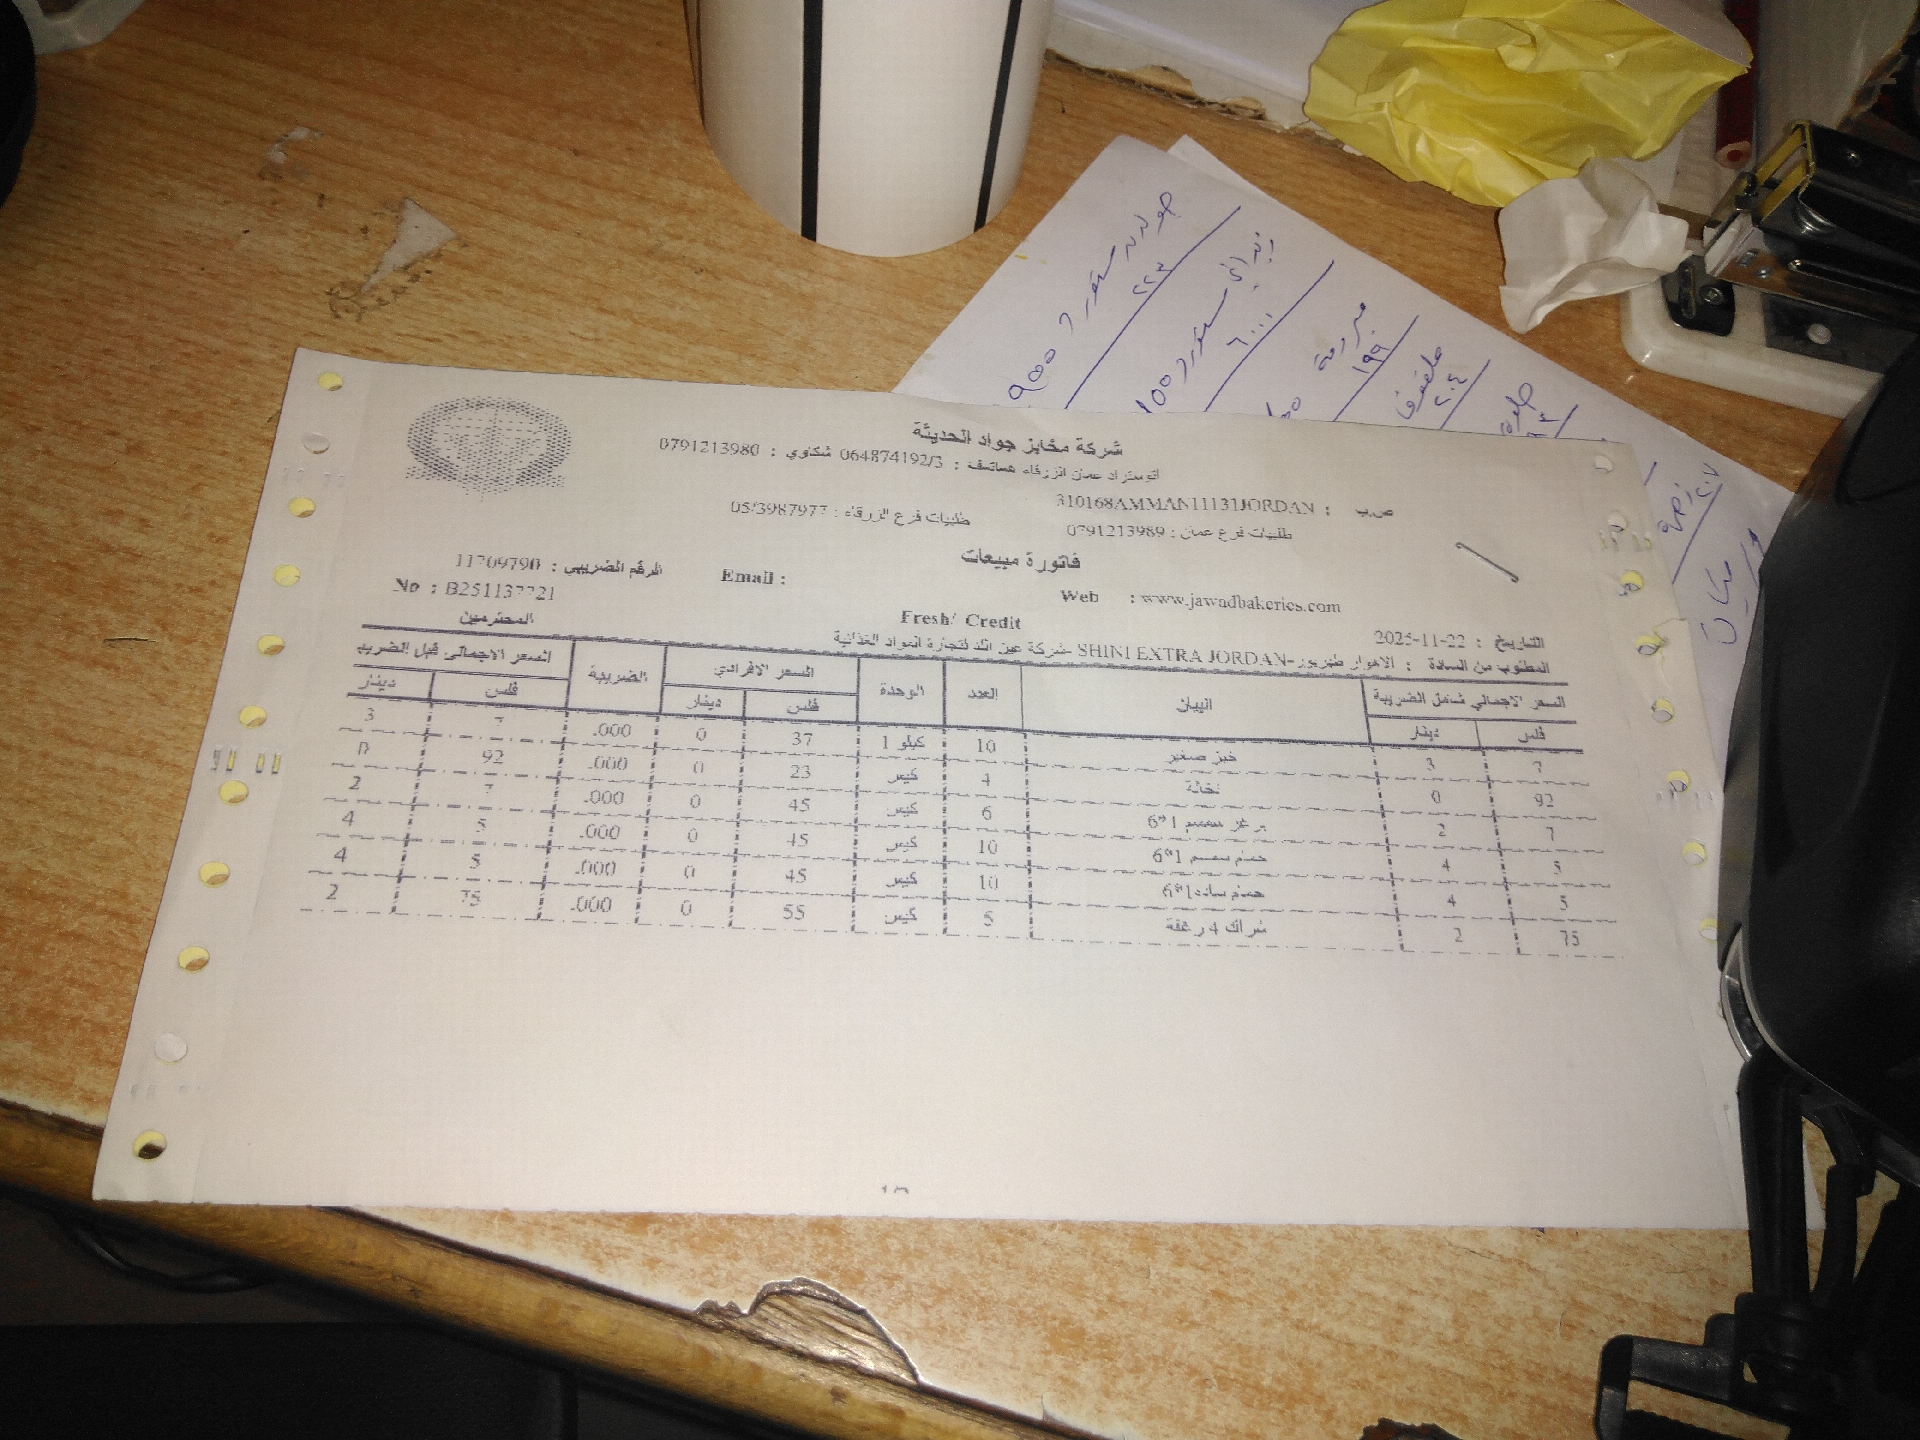 شركة مخابز جواد الحديثة
اتوستراد عمان الزرقاء هاتف : 064874192/3 شكاوي : 0791213980
ص.ب : 310168AMMAN11131JORDAN
طلبيات فرع عمان : 0791213989 طلبيات فرع الزرقاء : 05/3987977
فاتورة مبيعات
Web : www.jawadbakeries.com Email : الرقم الضريبي : 11709790
Fresh/ Credit No : B2511
التاريخ : 2025-11-22
المطلوب من السادة : SHINI EXTRA JORDAN- شركة لتجارة المواد الغذائية المحترمين
السعر الاجمالي شامل الضريبة البيان العدد الوحدة السعر الافرادي الضريبة السعر الاجمالي قبل الضريبة
فلس دينار فلس دينار فلس دينار
7 3 خبز صغير 10 كيلو 1 37 0 .000 7 3
92 0 نخالة 4 كيس 23 0 .000 92 0
7 2 برغر سمسم 1*6 6 كيس 45 0 .000 7 2
5 4 حمام سمسم 1*6 10 كيس 45 0 .000 5 4
5 4 حمام ساده 1*6 10 كيس 45 0 .000 5 4
75 2 شراك 4 رغفة 5 كيس 55 0 .000 75 2
٢٢٣
٦٠٠٠
١٩٩
ملفوف
٢٠٤
٢٠٧